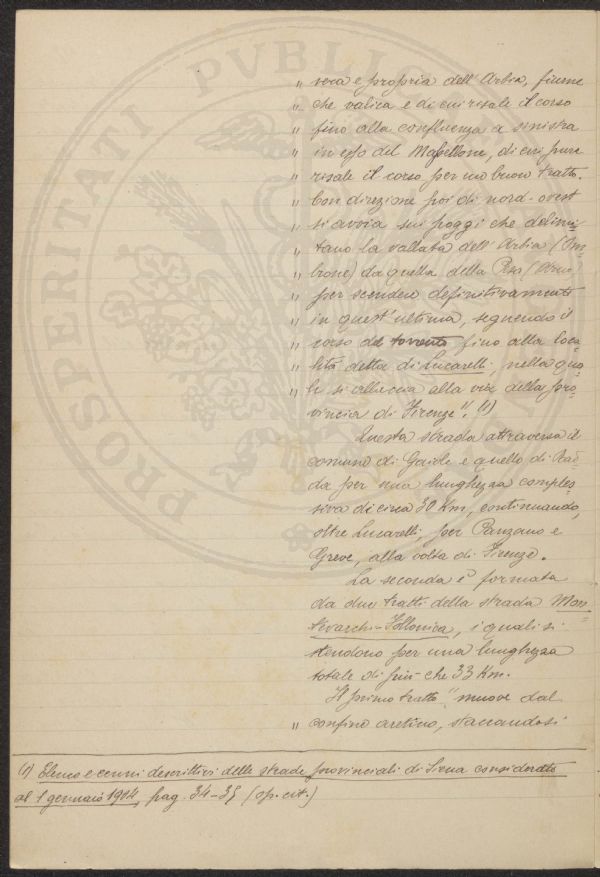 PROSPERITATI PVBLICAE
" vera e propria dell'Arbia, fiume
" che valica e di cui risale il corso
" fino alla confluenza a sinistra
" in esso del Massellone, di cui pure
" risale il corso per un buon tratto.
" Con direzione poi di nord-ovest
" si avvia sui poggi che delimi-
" tano la vallata dell'Arbia (Om-
" brone) da quella della Pesa (Arno)
" per scendere definitivamente
" in quest'ultima, seguendo il
" corso del torrente fino alla loca-
" lità detta di Lucarelli, nella qua-
" le si allaccia alla via della pro-
" vincia di Firenze". (1)
Questa strada attraversa il
comune di Gaiole e quello di Rad-
da per una lunghezza comples-
siva di circa 30 Km, continuando,
oltre Lucarelli, per Panzano e
Greve, alla volta di Firenze.
La seconda è formata
da due tratti della strada Mon-
tevarchi-Follonica, i quali si
stendono per una lunghezza
totale di più che 33 Km.
Il primo tratto "muove dal
" confine aretino, staccandosi
(1) Elenco e cenni descrittivi delle strade provinciali di Siena considerate
al 1 gennaio 1904, pag. 34-35 (op. cit.)